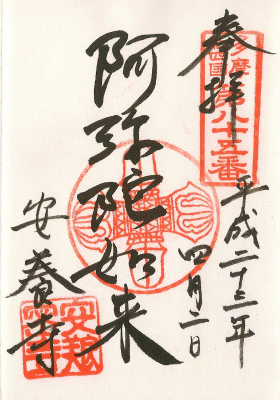 奉拝
多摩
四国
第八十五番
平成二十三年
四月二日
阿弥陀如来
安養寺